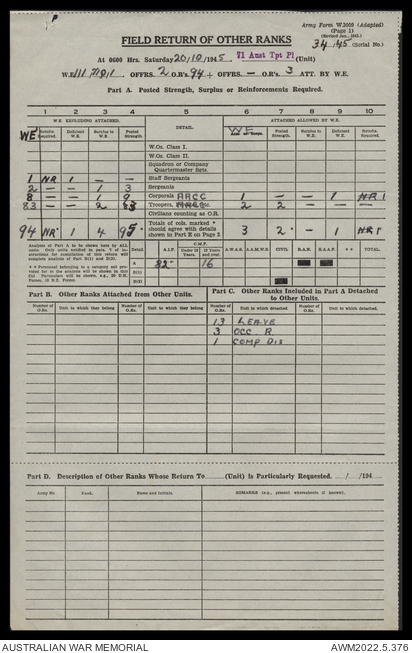 P
Army Form W.3009 (Adapted)
(Page 1)
(Revised Jan., 1945.)
34/45 (Serial No.)
FIELD RETURN OF OTHER RANKS
At 0600 Hrs. Saturday 20/10/1945 71 Aust Tpt Pl (Unit)
W.E. III OFFRS. 2 O.R's. 94 + OFFRS. — O.R's. 3 ATT. BY W.E.
Part A. Posted Strength, Surplus or Reinforcements Required.
1 2 3 4 5 6 7 8 9 10
W.E. EXCLUDING ATTACHED. DETAIL. ATTACHED ALLOWED BY W.E.
WE Reinfts. Required. Deficient W.E. Surplus to W.E. Posted Strength. WE Posted Strength. Surplus to W.E. Deficient W.E. Reinfts. Required.
W.Os. Class I.
W.Os. Class II.
Squadron or Company Quartermaster Sgts.
1 NR 1 — — Staff Sergeants
2 — — 1 3 Sergeants
8 — — 1 9 Corporals AACC 1 — — 1 NR 1
83 — — 2 83 Troopers, etc. 2 2 — — —
Civilians counting as O.R.
94 NR 1 4 95 Totals of cols. marked * should agree with details shown in Part E on Page 2. 3 2 — 1 NR 1
Analysis of Part A to be shown here by ALL units. Detail A.I.F. C.M.F. Under 19 Years. 19 Years and over. A.W.A.S. A.A.M.W.S. CIVIL R.A.N. R.A.A.F. ** TOTAL.
A 82 16
B(i)
B(ii)
Part B. Other Ranks Attached from Other Units. Part C. Other Ranks Included in Part A Detached to Other Units.
Number of O.Rs. Unit to which they belong Number of O.Rs. Unit to which they belong Number of O.Rs. Unit to which detached. Number of O.Rs. Unit to which detached.
13 LEAVE
3 OCC. R.
1 COMP DIS
Part D. Description of Other Ranks Whose Return To (Unit) is Particularly Requested. / /194
Army No. Rank. Name and Initials. REMARKS (e.g., present whereabouts if known).
AUSTRALIAN WAR MEMORIAL AWM2022.5.376